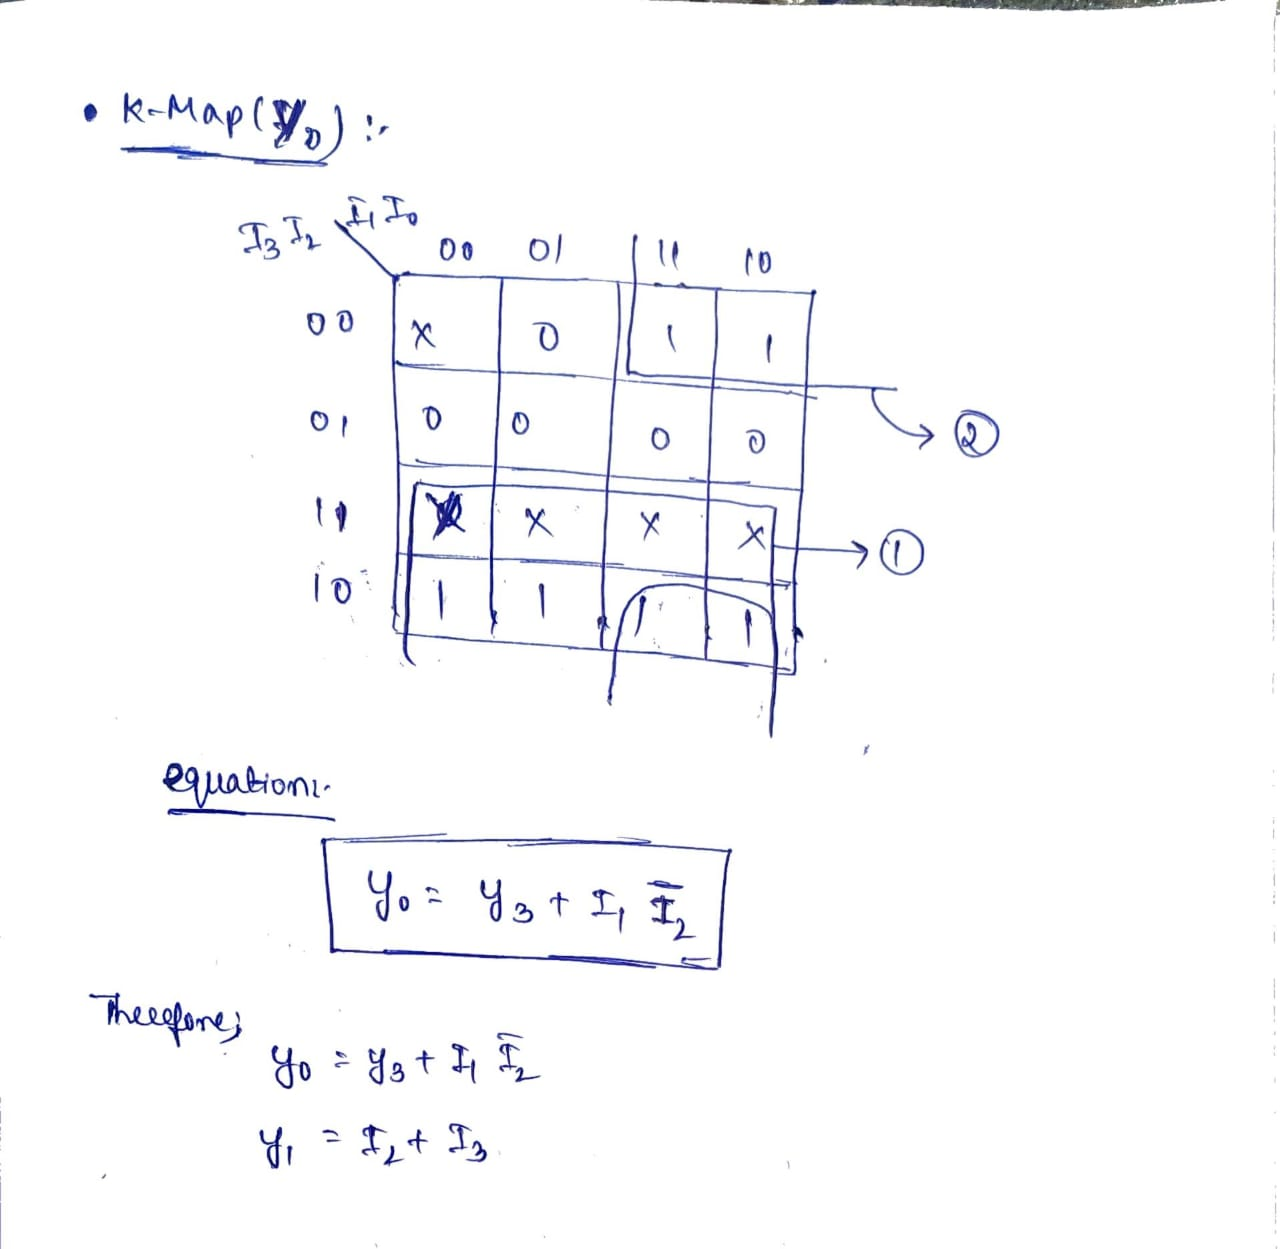 • K-Map (Y₀) :-
I₃ I₂ I₁ I₀
00 01 11 10
00 X 0 1 1
01 0 0 0 0
②
11 X X X X
①
10 1 1 1 1
equation:-
y₀ = y₃ + I₁ I̅₂
Therefore;
y₀ = y₃ + I₁ I̅₂
y₁ = I₂ + I₃